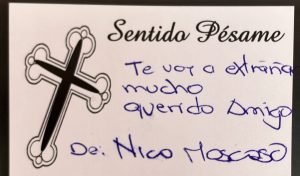 Sentido Pésame
Te voy a extrañar
mucho
querido Amigo
De: Nico Moscoso